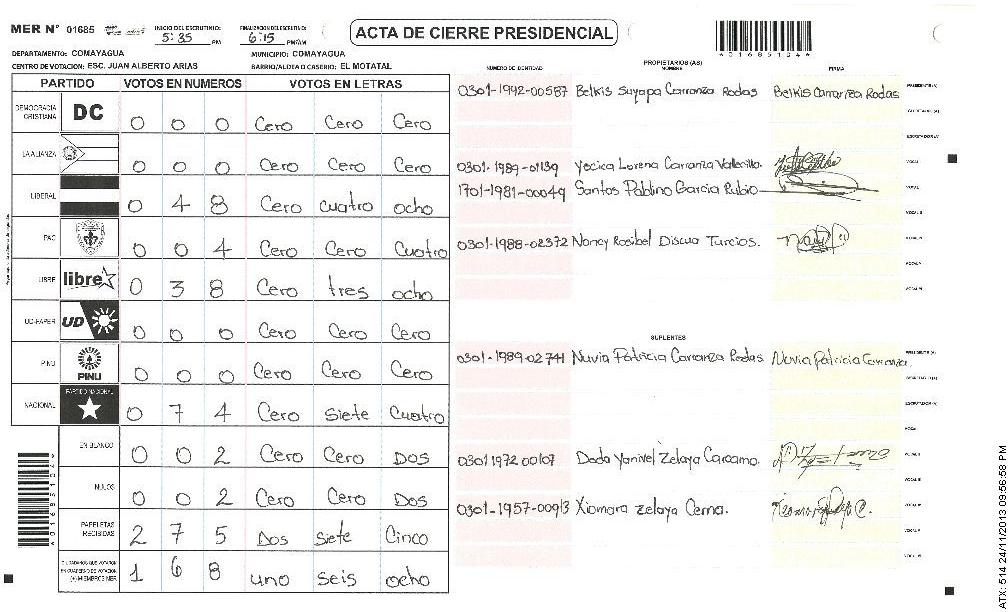 MER N° 01685 INICIO DEL ESCRUTINIO: 5:35 PM FINALIZACION DEL ESCRUTINIO: 6:15 PM/AM
ACTA DE CIERRE PRESIDENCIAL
DEPARTAMENTO: COMAYAGUA MUNICIPIO: COMAYAGUA
CENTRO DE VOTACION: ESC. JUAN ALBERTO ARIAS BARRIO/ALDEA O CASERIO: EL MOTATAL
PARTIDO VOTOS EN NUMEROS VOTOS EN LETRAS
DEMOCRACIA CRISTIANA DC 0 0 0 Cero Cero Cero
LA ALIANZA 0 0 0 Cero Cero Cero
LIBERAL 0 4 8 Cero cuatro ocho
PAC 0 0 4 Cero Cero Cuatro
LIBRE libre 0 3 8 Cero tres ocho
UD-FAPER UD 0 0 0 Cero Cero Cero
PINU PINU 0 0 0 Cero Cero Cero
NACIONAL PARTIDO NACIONAL 0 7 4 Cero siete Cuatro
EN BLANCO 0 0 2 Cero Cero Dos
NULOS 0 0 2 Cero Cero Dos
PAPELETAS RECIBIDAS 2 7 5 Dos siete Cinco
CIUDADANOS QUE VOTARON EN CUADERNO DE VOTACION (+) MIEMBROS MER 1 6 8 uno seis ocho
NUMERO DE IDENTIDAD PROPIETARIOS (AS) NOMBRE FIRMA
0301-1992-00587 Belkis Suyapa Carranza Rodas Belkis Carranza Rodas PRESIDENTE (A)
SECRETARIO (A)
ESCRUTADOR (A)
0301-1989-01139 Yecica Lorena Carranza Vallecillo. VOCAL I
1701-1981-00049 Santos Pablino Garcia Rubio VOCAL II
VOCAL III
0301-1988-02372 Noncy Rosibel Discua Turcios. VOCAL IV
VOCAL V
VOCAL VI
SUPLENTES
0301-1989-02741 Nuvia Patricia Carranza Rodas. Nuvia Patricia Carranza PRESIDENTE (A)
SECRETARIO (A)
ESCRUTADOR (A)
VOCAL I
0301 1972 00107 Doda Yanivel Zelaya Carcamo. VOCAL II
VOCAL III
0301-1957-00913 Xiomara Zelaya Cerna. VOCAL IV
VOCAL V
VOCAL VI
ATX: 514 24/11/2013 09:56:58 PM